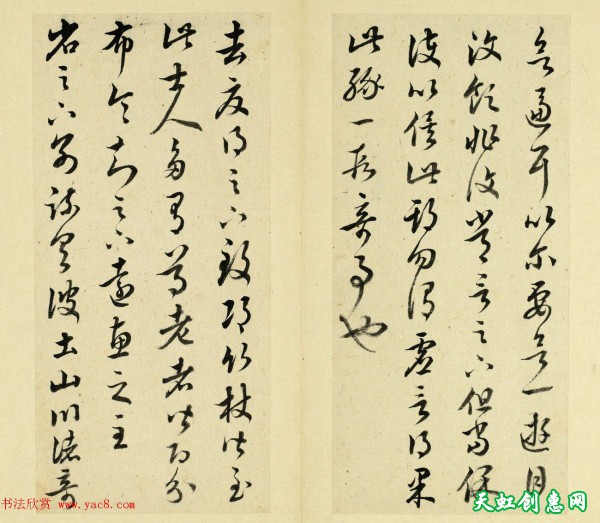 欲逼耳以爾要欲一遊目
汶領非復常言足下但當保
護以俟此期勿謂虛言得果
此緣一段奇事也
去夏得足下致邛竹杖皆至
此士人多有尊老者皆即分
布令知足下遠惠之至
省足下別疏具彼土山川諸奇
书法欣赏 www.yac8.com
天虹创惠网